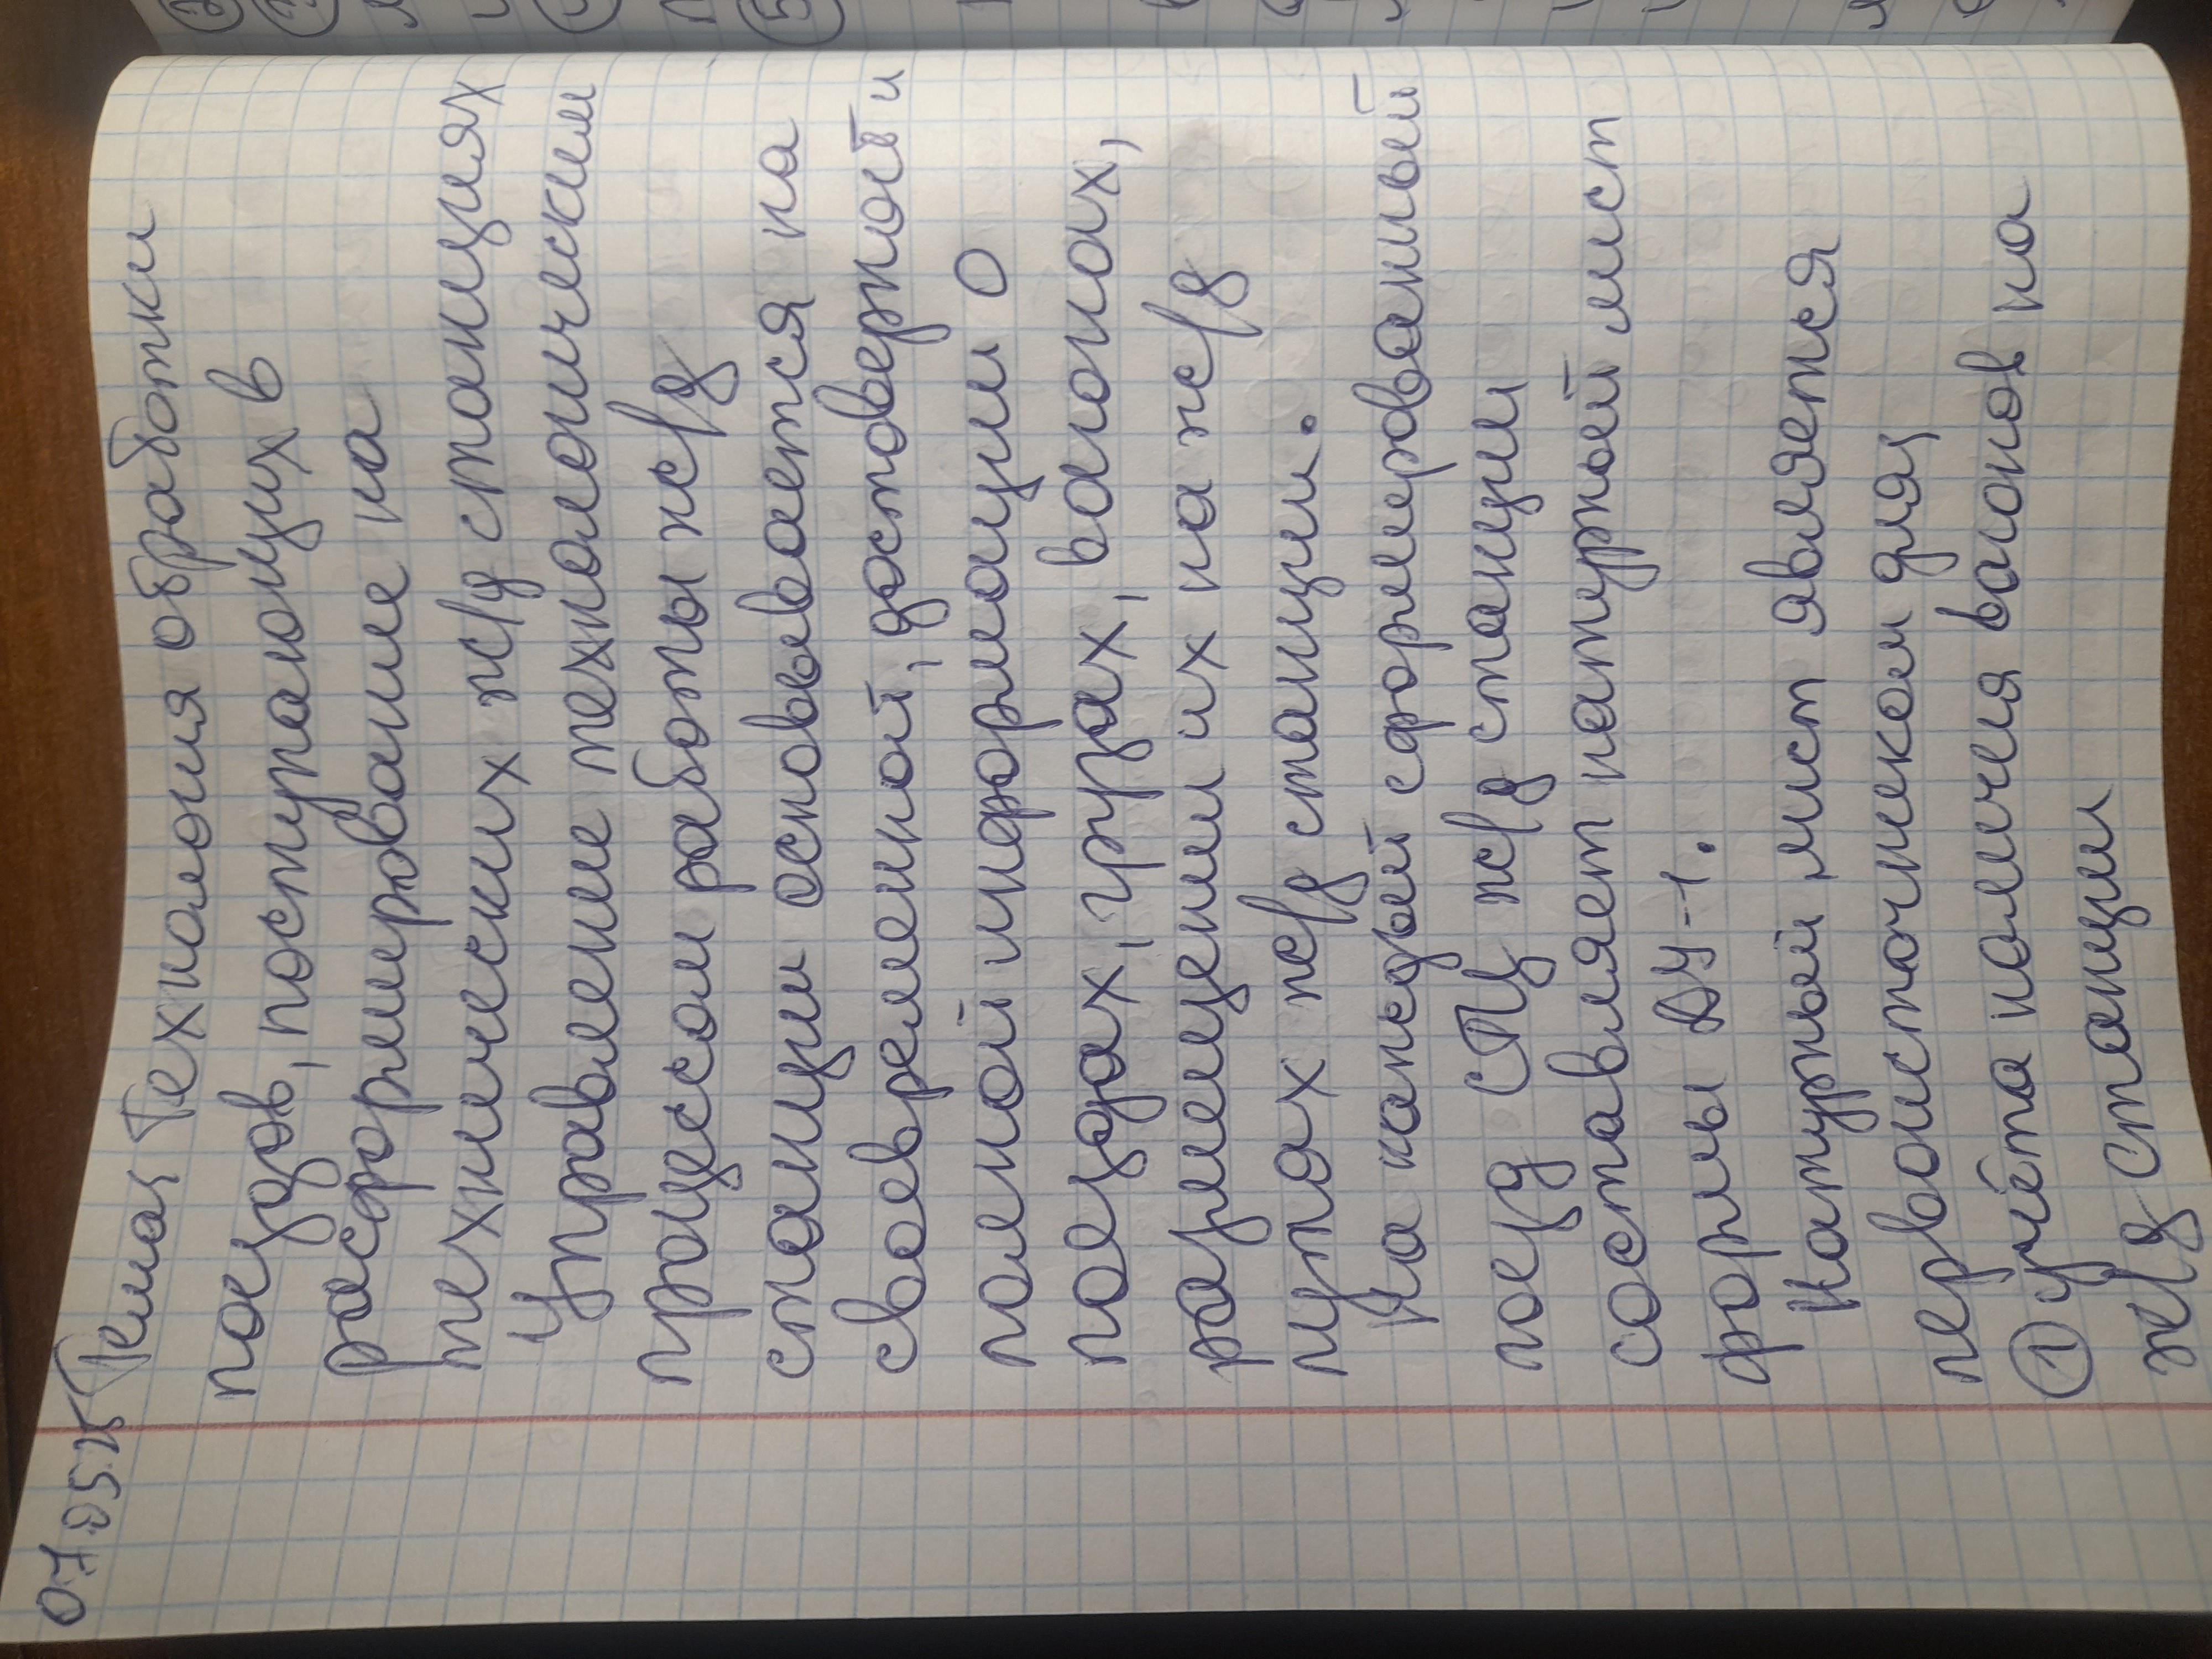 07.05.25 Тема: Технология обработки
поездов, поступающих в
расформирование на
технических ж/д станциях
Управление технологическим
процессом работы ж/д
станции основывается на
своевременной, достоверной и
полной информации о
поездах, грузах, вагонах,
размещении их на ж/д
путях ж/д станции.
На каждый сформированный
поезд СТЦ ж/д станции
составляет натурный лист
формы ДУ-1.
Натурный лист является
первоисточником для:
① учёта наличия вагонов на
ж/д станции